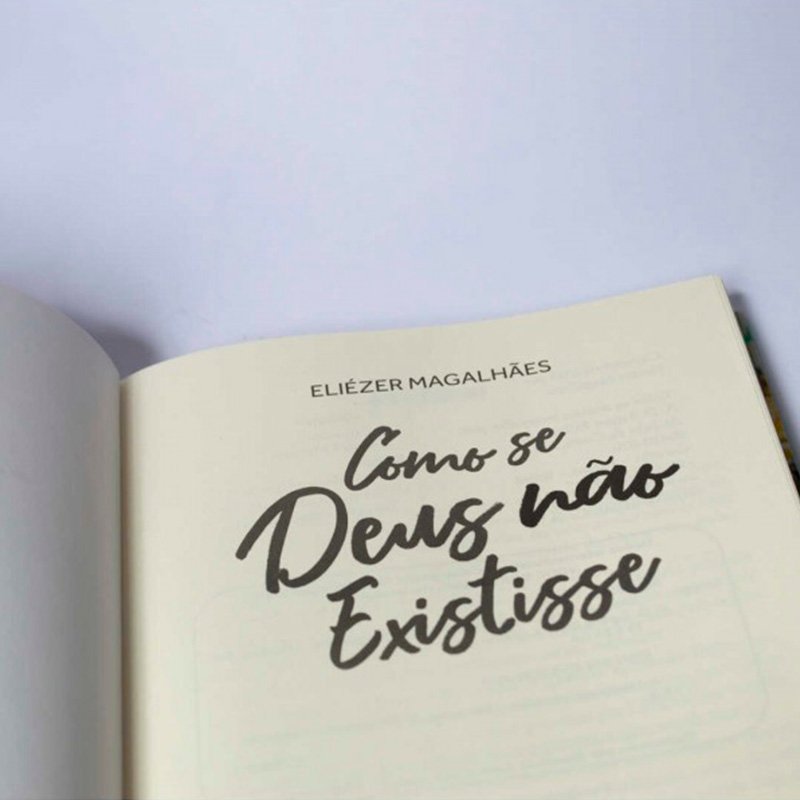 ELIÉZER MAGALHÃES
Como se
Deus não
Existisse